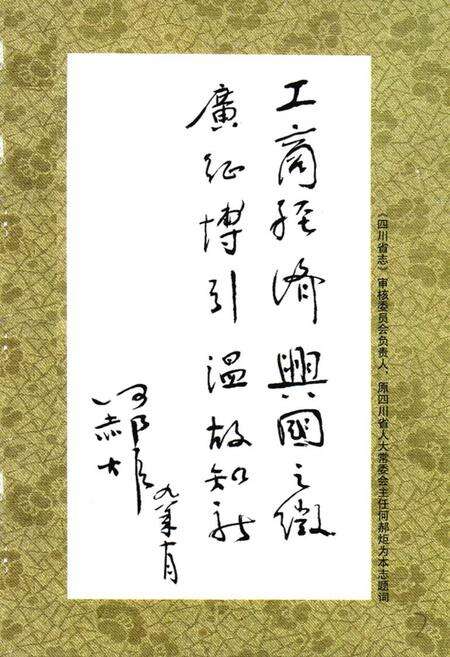 《四川省志》审核委员会负责人，原四川省人大常委会主任何郝炬为本志题词
工商经济興國之徵
廣征博引温故知新
何郝炬